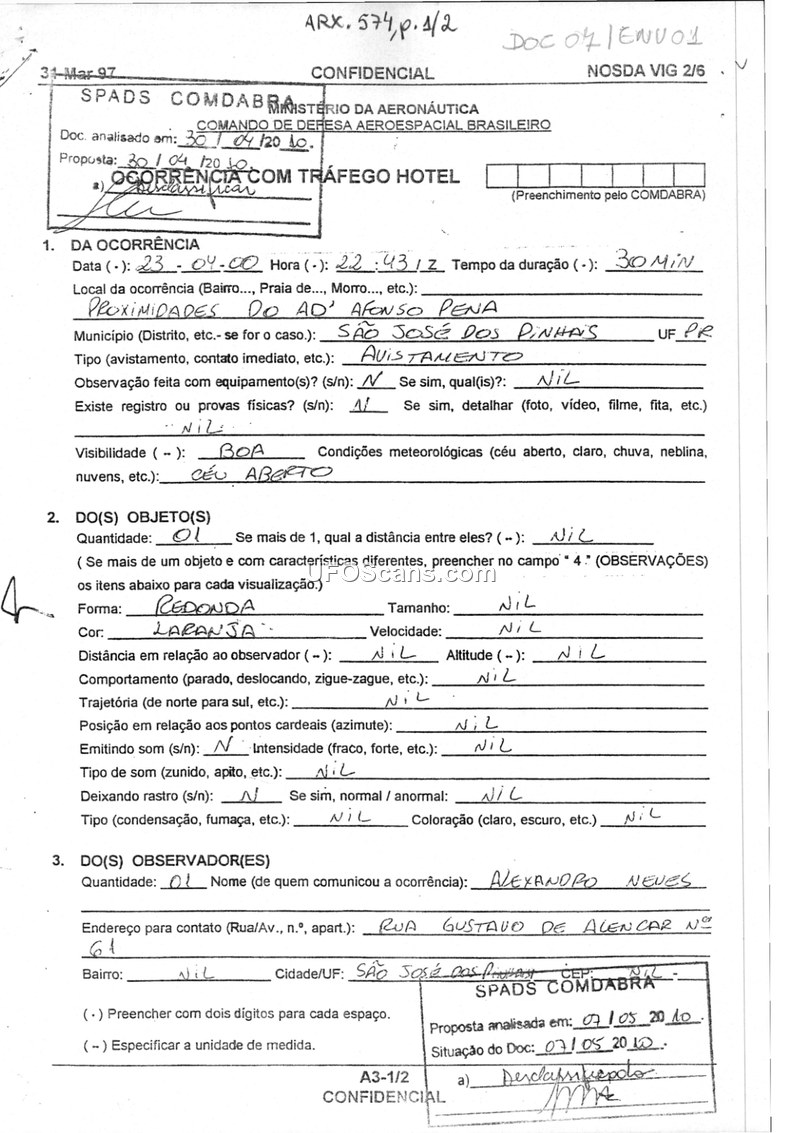 ARX. 574, p. 1/2
DOC 04/ENV01
31 Mar 97 CONFIDENCIAL NOSDA VIG 2/6
SPADS COMDABRA
MINISTÉRIO DA AERONÁUTICA
COMANDO DE DEFESA AEROESPACIAL BRASILEIRO
Doc. analisado em: 30 / 04 /20 10.
Proposta: 30 / 04 /20 10.
OCORRÊNCIA COM TRÁFEGO HOTEL
a) Desclassificar
(Preenchimento pelo COMDABRA)
1. DA OCORRÊNCIA
Data ( - ): 23 - 04 - 00 Hora ( - ): 22 : 43 / Z Tempo da duração ( - ): 30 MIN
Local da ocorrência (Bairro..., Praia de..., Morro..., etc.):
PROXIMIDADES DO AD' AFONSO PENA
Município (Distrito, etc.- se for o caso.): SÃO JOSÉ DOS PINHAIS UF PR
Tipo (avistamento, contato imediato, etc.): AVISTAMENTO
Observação feita com equipamento(s)? (s/n): N Se sim, qual(is)?: NIL
Existe registro ou provas físicas? (s/n): N Se sim, detalhar (foto, vídeo, filme, fita, etc.)
NIL
Visibilidade ( -- ): BOA Condições meteorológicas (céu aberto, claro, chuva, neblina,
nuvens, etc.): CÉU ABERTO
2. DO(S) OBJETO(S)
Quantidade: 01 Se mais de 1, qual a distância entre eles? ( -- ): NIL
( Se mais de um objeto e com características diferentes, preencher no campo " 4 " (OBSERVAÇÕES)
os itens abaixo para cada visualização.)
UFOScans.com
Forma: REDONDA Tamanho: NIL
Cor: LARANJA Velocidade: NIL
Distância em relação ao observador ( -- ): NIL Altitude ( -- ): NIL
Comportamento (parado, deslocando, zigue-zague, etc.): NIL
Trajetória (de norte para sul, etc.): NIL
Posição em relação aos pontos cardeais (azimute): NIL
Emitindo som (s/n): N Intensidade (fraco, forte, etc.): NIL
Tipo de som (zunido, apito, etc.): NIL
Deixando rastro (s/n): N Se sim, normal / anormal: NIL
Tipo (condensação, fumaça, etc.): NIL Coloração (claro, escuro, etc.) NIL
3. DO(S) OBSERVADOR(ES)
Quantidade: 01 Nome (de quem comunicou a ocorrência): ALEXANDRO NEVES
Endereço para contato (Rua/Av., n.º, apart.): RUA GUSTAVO DE ALENCAR Nº
61
Bairro: NIL Cidade/UF: SÃO JOSÉ DOS PINHAIS CEP: NIL -
SPADS COMDABRA
( - ) Preencher com dois dígitos para cada espaço.
Proposta analisada em: 07 / 05 20 10.
( -- ) Especificar a unidade de medida.
Situação do Doc: 07 / 05 20 10
A3-1/2
a) Desclassificado
CONFIDENCIAL